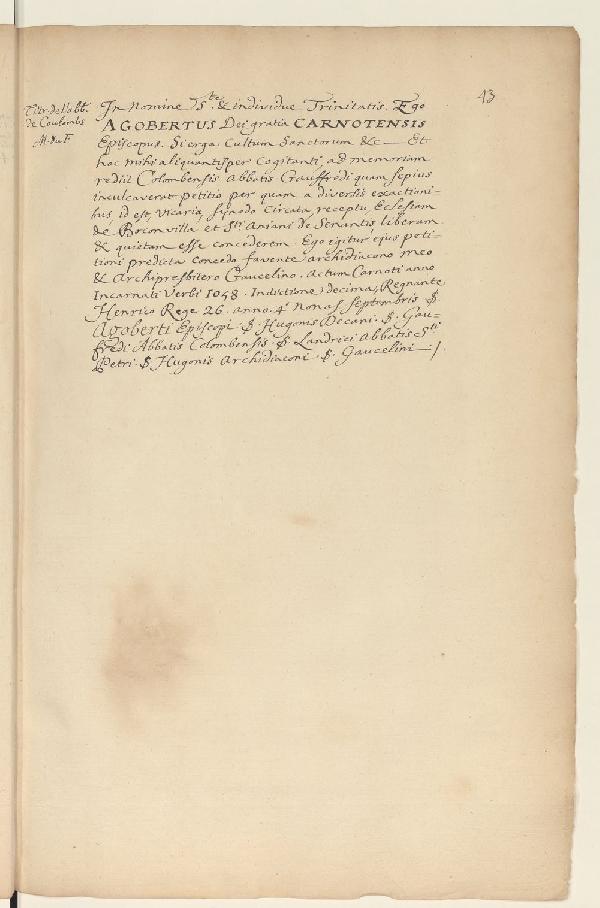 13
Titr. de l'abb.
de Coulombs
M. du F
In Nomine Ste & individue Trinitatis. Ego
AGOBERTUS Dei gratia CARNOTENSIS
Episcopus. Si erga Cultum Sanctorum &c — Et
hoc mihi aliquantisper Cogitanti, ad memoriam
rediit Colombensis Abbatis Gauffredi quam sepius
inculcaverat petitio per quam a diversis exactioni-
bus, id est, Vicaria, sinodo Circata, receptu, Eclesiam
de Broinvilla et Sti Aniani de Senantis, liberam
& quietam esse concederem. Ego igitur ejus peti-
tioni predicta concedo favente archidiacono meo
& Archipresbitero Gaucelino. Actum Carnoti anno
Incarnati Verbi 1058. Indictione decima, Regnante
Henrico Rege 26. anno. 4° nonas Septembris S.
Agoberti Episcopi. S. Hugonis Decani. S. Gau-
fredi Abbatis Colombensis. S. Landrici Abbatis Sti
Petri. S. Hugonis Archidiaconi. S. Gaucelini —/.